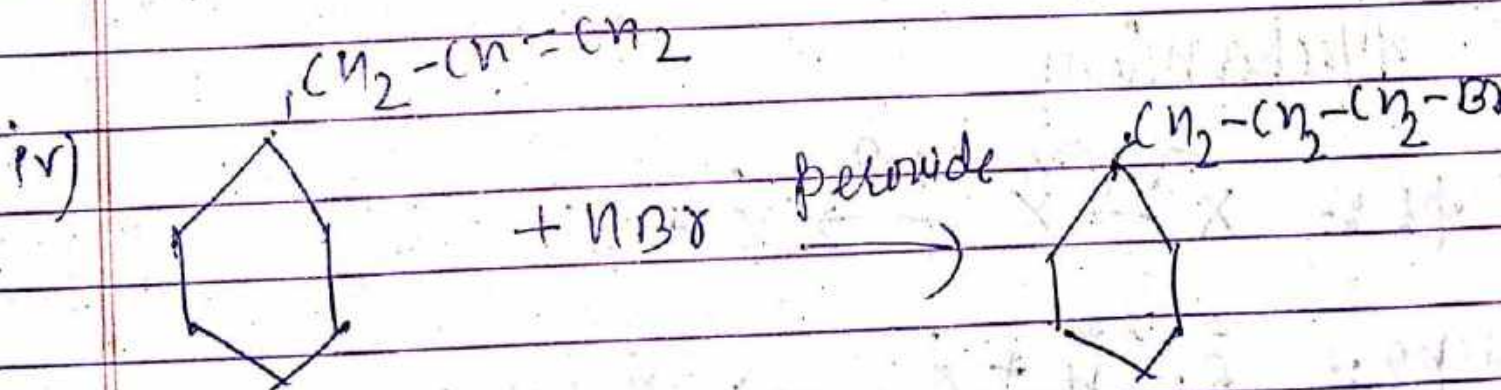 CH2-CH=CH2
iv)
+ HBr
peroxide
CH2-CH2-CH2-Br